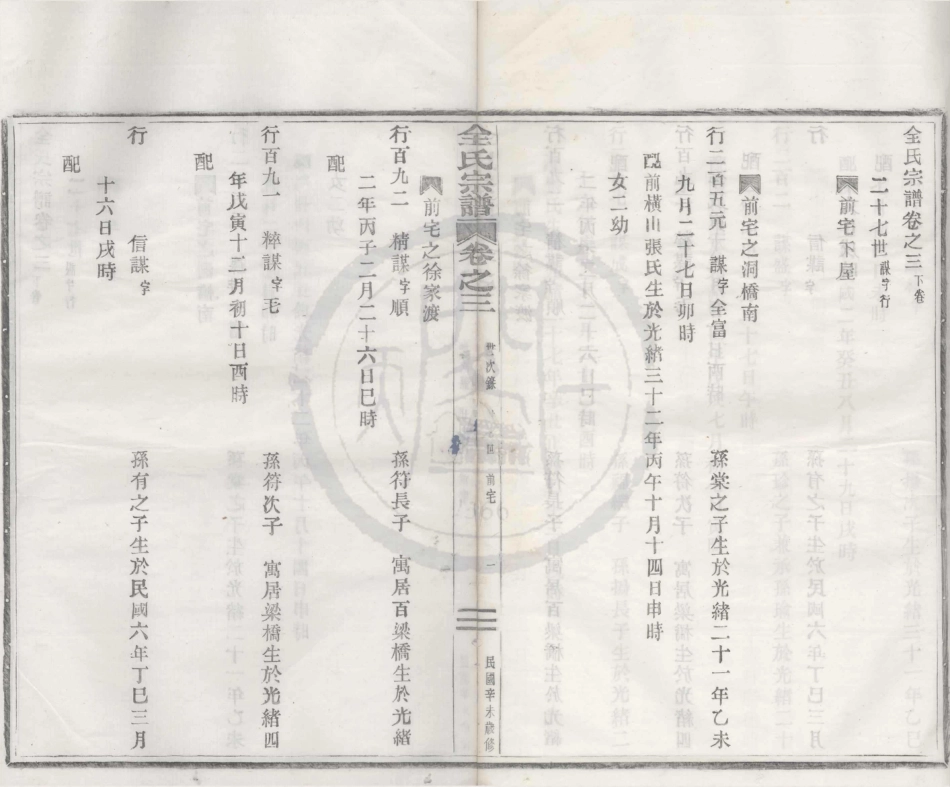 全氏宗譜卷之三下卷
二十七世謀字行
前宅下屋
前宅之洞橋南
行二百五元 謀字全富 孫棠之子生於光緒二十一年乙未
九月二十七日卯時
配前橫山張氏生於光緒三十二年丙午十月十四日申時
女二幼
全氏宗譜 卷之三 世次錄 前宅 一 民國辛未歲修
前宅之徐家渡
行百九二 精謀字順 孫符長子 寓居百梁橋生於光緒
二年丙子二月二十六日巳時
配
行百九一 粹謀字毛 孫符次子 寓居梁橋生於光緒四
年戊寅十二月初十日酉時
配
行 信謀字 孫有之子生於民國六年丁巳三月
十六日戌時
配